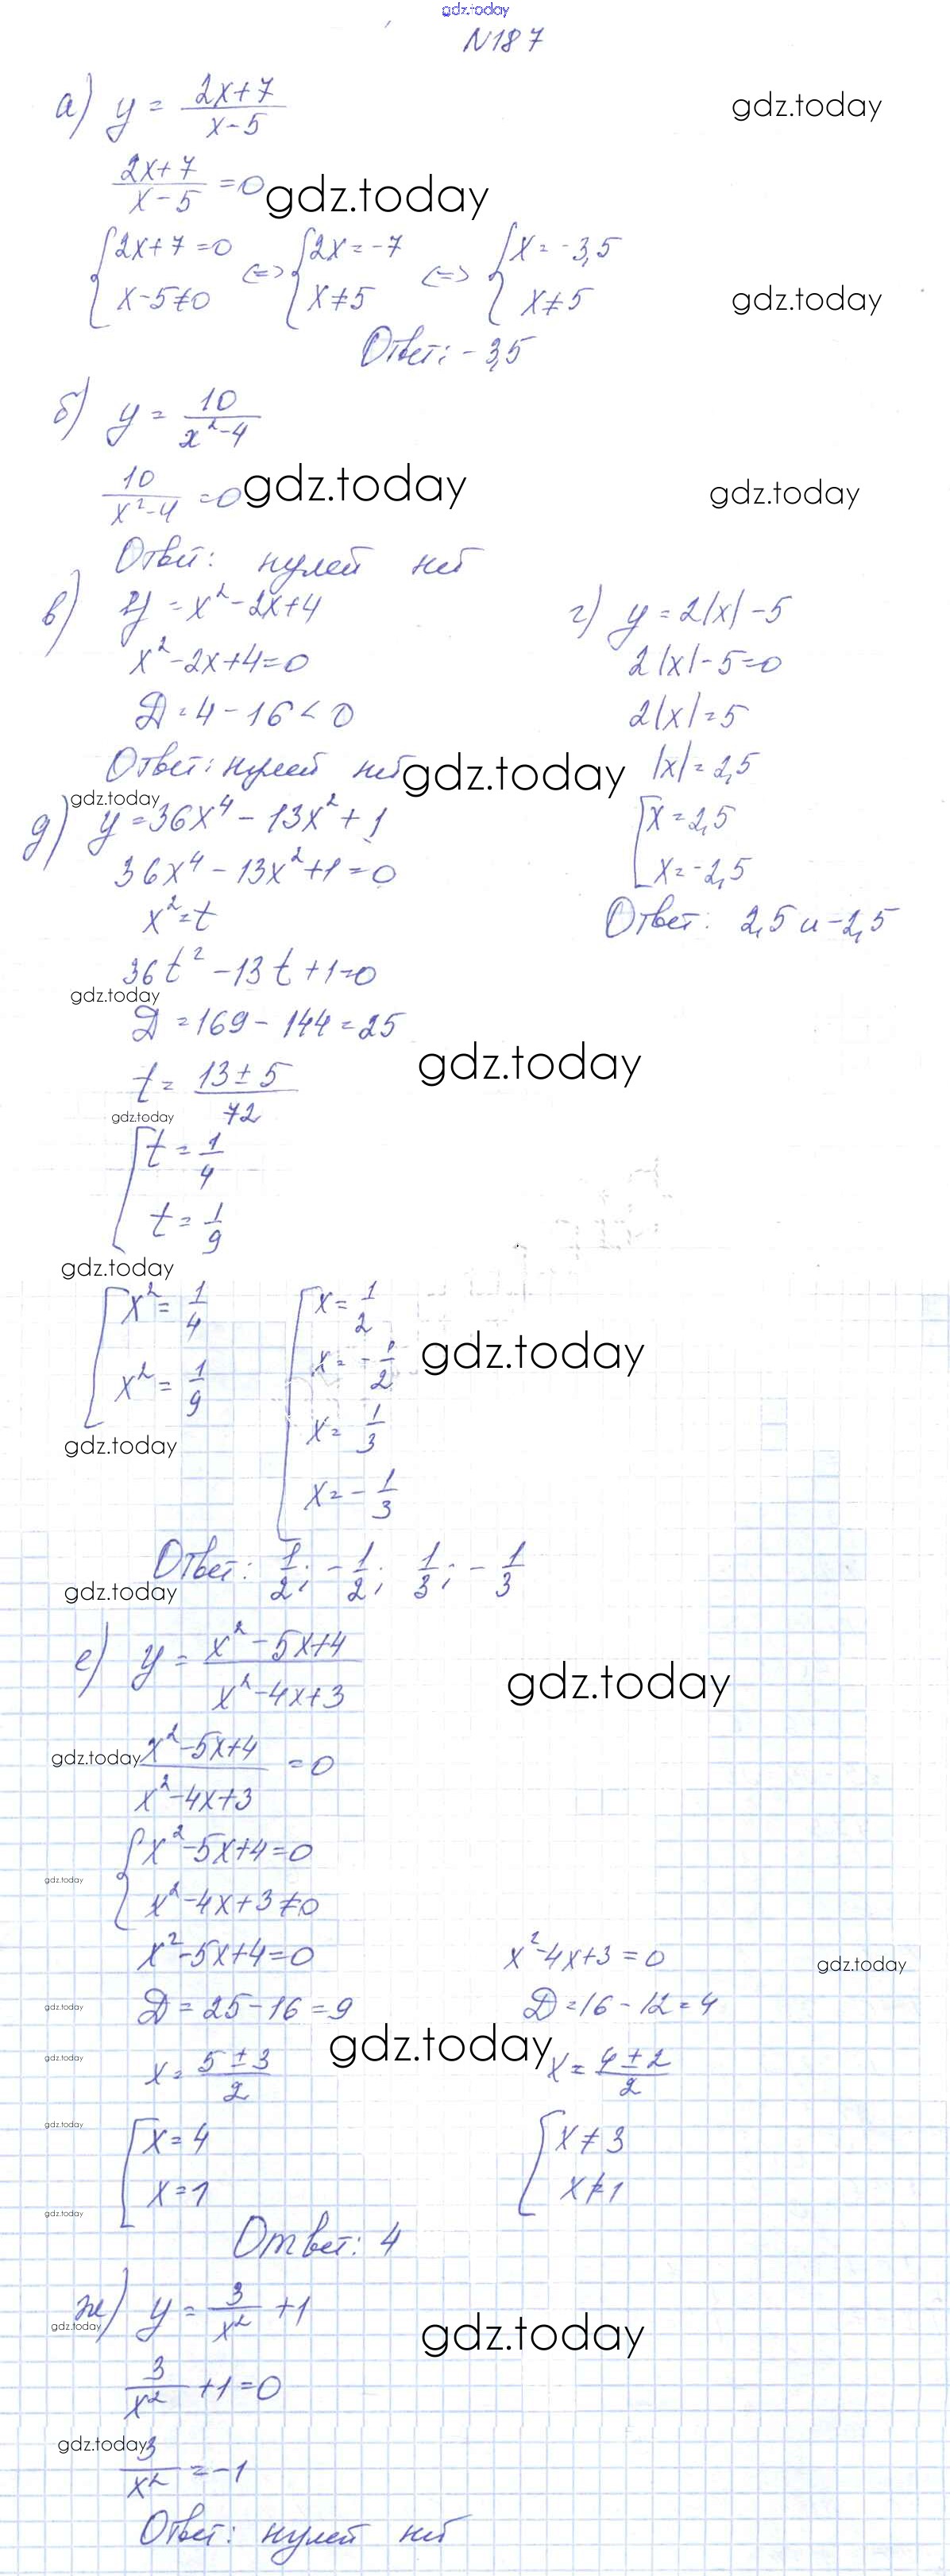 gdz.today
N187
а) y = (2x+7)/(x-5)
gdz.today
(2x+7)/(x-5) = 0
gdz.today
{2x+7=0 ⇔ {2x=-7 ⇔ {x=-3,5
x-5≠0 x≠5 x≠5
gdz.today
Ответ: -3,5
б) y = 10/(x²-4)
10/(x²-4) = 0
gdz.today
gdz.today
Ответ: нулей нет
в) y = x²-2x+4
x²-2x+4=0
Д = 4-16 < 0
Ответ: нулей нет
gdz.today
г) y = 2|x|-5
2|x|-5=0
2|x|=5
|x|=2,5
[x=2,5
x=-2,5
Ответ: 2,5 и -2,5
gdz.today
д) y = 36x⁴-13x²+1
36x⁴-13x²+1=0
x²=t
36t²-13t+1=0
gdz.today
Д = 169-144=25
gdz.today
t = (13±5)/72
gdz.today
[t = 1/4
t = 1/9
gdz.today
[x² = 1/4 [x = 1/2
x = -1/2
gdz.today
x² = 1/9 x = 1/3
gdz.today
x = -1/3
Ответ: 1/2; -1/2; 1/3; -1/3
gdz.today
е) y = (x²-5x+4)/(x²-4x+3)
gdz.today
gdz.today
(x²-5x+4)/(x²-4x+3) = 0
{x²-5x+4=0
gdz.today
x²-4x+3≠0
x²-5x+4=0 x²-4x+3=0
gdz.today
gdz.today
Д = 25-16=9 Д = 16-12=4
gdz.today
gdz.today
x = (5±3)/2 x = (4±2)/2
gdz.today
[x=4 {x≠3
x=1 x≠1
gdz.today
Ответ: 4
ж) y = 3/x² +1
gdz.today
gdz.today
3/x² +1=0
gdz.today
3/x² = -1
Ответ: нулей нет